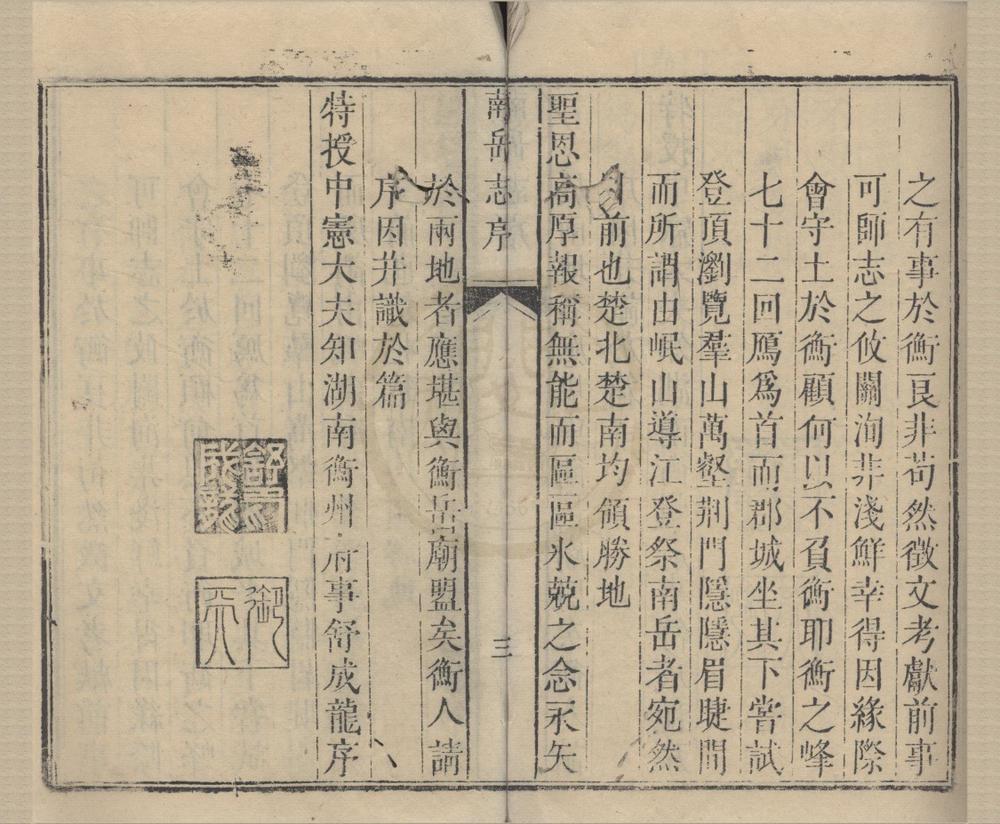 之有事於衡良非苟然徵文考獻前事
可師志之攸關洵非淺鮮幸得因緣際
會守土於衡顧何以不負衡耶衡之峰
七十二回鴈爲首而郡城坐其下嘗試
登頂瀏覽羣山萬壑荆門隱隱眉睫間
而所謂由岷山導江登祭南岳者宛然
目前也楚北楚南均領勝地
聖恩高厚報稱無能而區區氷兢之念永矢
南岳志序
三
於兩地者應堪與衡岳廟盟矣衡人請
序因并識於篇
特授中憲大夫知湖南衡州府事舒成龍序
舒成龍
御天